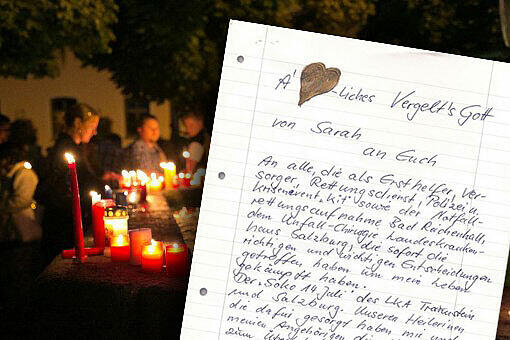 A' ♥-liches Vergelt's Gott
von Sarah
an Euch
An alle, die als Ersthelfer, Ver-
sorger Rettungsdienst, Polizei,
Krisenevent, Kit sowie der Notfall-
rettungsaufnahme Bad Reichenhall,
dem Unfall-Chirugie Landeskranken-
haus Salzburg, die sofort die
richtigen und wichtigen Entscheidungen
getroffen, haben um mein Leben
gekämpft haben.
Der "Soko 14 Juli" des LKA Traunstein
und Salzburg. Unseren Heilerinen
die dafür gesorgt haben mir und
meinen Angehörigen die
zum